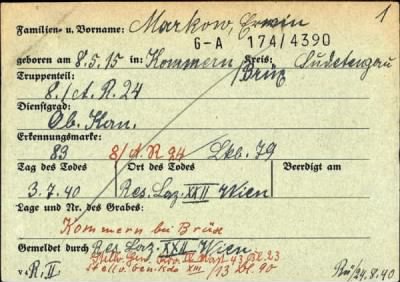 1
Familien- u. Vorname: Markow, Erwin
G-A 174/4390
geboren am 8.5.15 in: Kommern Kreis: /Brüx Sudetengau
Truppenteil:
8./A.R.24
Dienstgrad:
Ob. Kan.
Erkennungsmarke:
83 8/A.R 24 79
Tag des Todes Ort des Todes Beerdigt am
3.7.40 Res. Laz. XXII Wien
Lage und Nr. des Grabes:
Kommern bei Brüx
Gemeldet durch Res. Laz. XXII Wien
Stellv. Gen. 43 Bl. 23
v. R. II stellv. Gen. Kdo XIII /13 Bl. 90
24.8.40